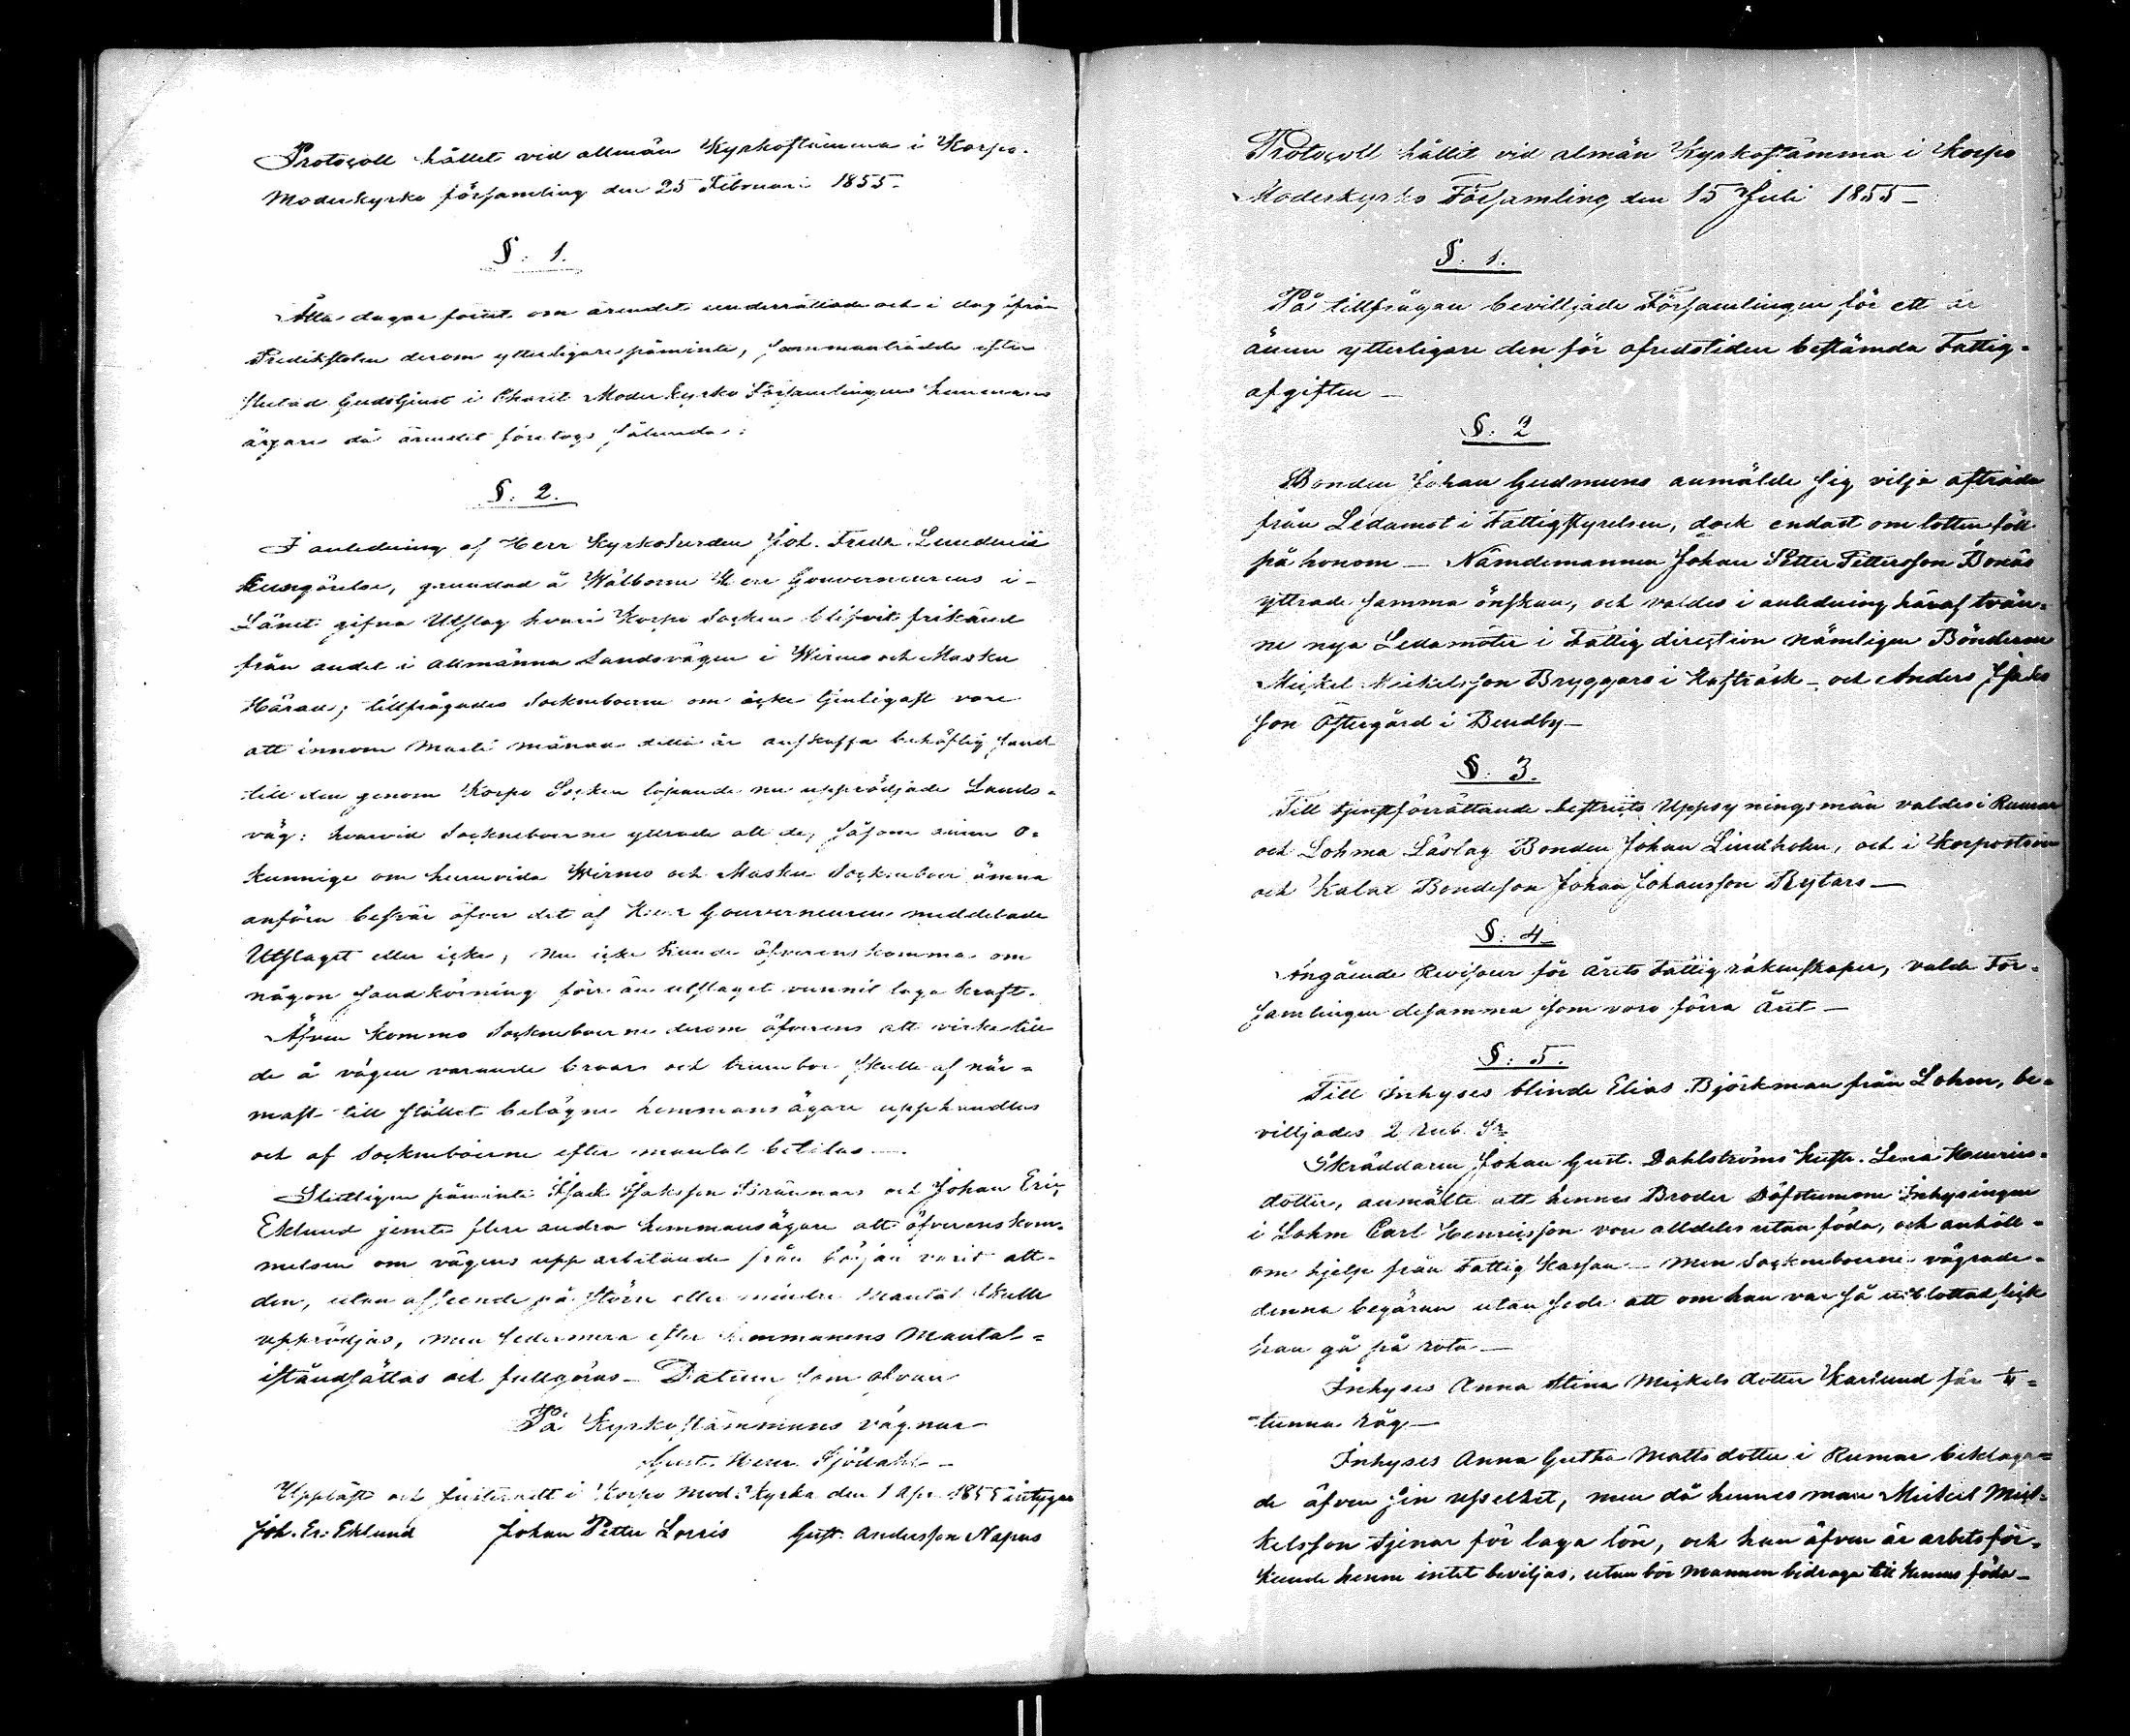 Protocoll hållit vid allmän Kyrkostämma i Korpo
Moderkyrko församling den 25 Februari 1855.
§: 1.
Åtta dagar förut om ärendet underrättade och i dag ifrån
Predikstolen derom ytterligare påminte, sammanträdde efter
slutad Gudstjenst i Choret Moderkyrko Församlingens hemmans
ägare då ärendet företogs sålunda:
§: 2.
I anledning af Herr Kyrkoherden Joh. Fredr. Lundenii
kungörelse, grundad å Wälborne Herr Gouverneurens i
Länet gifna Utslag hvari Korpo Socken blifvit frikänd
från andel i allmänna Landsvägen i Wirmo och Masku
Härad; tillfrågades Sockneboerne om icke tjenligast vore
att innom Martii månad detta år anskaffa behöflig sand
till den genom Korpo Socken löpande nu upprödjade Lands-
väg: hvarvid Socknebоerne yttrade att de, såsom ännu o-
kunnige om huruvida Wirmo och Masku Sockneboer ämna
anföra besvär öfver det af Herr Gouverneuren meddelade
Utslaget eller icke, nu icke kunde öfverenskomma om
någon sandkörning förr än utslaget vunnit laga kraft.
Äfven kommo Sockneboerne derom öfverens att virke till
de å vägen varande broar och trumbor skulle af när-
mast till stället belägne hemmansägare upphandlas
och af Sockneboerne efter mantal betalas —
Slutligen påminte Isack Isaksson Brännars och Johan Eric
Eklund jemte flere andra hemmansägare att öfverenskom-
melsen om vägens upparbetande från början varit att
den, utan afseende på större eller mindre mantal skulle
upprödjas, men sedermera efter hemmanens mantal
iståndsättas och fullgöras — Datum som ofvan
På Kyrkostämmans vägnar
Gust. Henr. Sjödahl —
Uppläst och justeradt i Korpo Mod. Kyrka den 1 Apr. 1855 intyga
Joh. Er. Eklund Johan Petter Lorris Gust. Andersson Napars
Protocoll hållit vid almän Kyrkostämma i Korpo
Moderkyrko Församling den 15 Juli 1855 —
§: 1.
På tillfrågan bevilljade Församlingen för ett år
ännu ytterligare den för ofredstiden bestämda Fattig-
afgiften —
§: 2
Bonden Johan Gudmuns anmälde sig vilja afträda
från Ledamot i Fattigstyrelsen, dock endast om lotten föll
på honom — Nämdemannen Johan Petter Pettersson Bonäs
yttrade samma önskan, och valdes i anledning häraf tvän-
ne nya Ledamöter i Fattigdirection nämligen Bönderne
Mickel Mickelsson Bryggars i Kafträsk — och Anders Isaks
son Östergård i Bendby —
§: 3.
Till tjenstförrättande bestricts Uppsyningsmän valdes i Rumar
och Lohma Låslag Bonden Johan Lindholm, och i Korpoström
och Kalax Bondeson Johan Johansson Rytars —
§: 4
Angående Revisorer för årets Fattigräkenskaper, valde För-
samlingen desamma som voro förra året —
§: 5.
Till Inhyses blinde Elias Björkman från Lohm, be-
villjades 2 Rub. Sr
Skräddaren Johan Gust. Dahlströms Hustr. Lena Henrics-
dotter, anmälte att hennes Broder Döfstumme Inhysingen
i Lohm Carl Henricsson vore alldeles utan föda, och anhöll
om hjelp från Fattig Kassan — Men Socknebоerne vägrade
denna begäran utan sade att om han var så utblottad fick
han gå på rota —
Inhyses Anna Stina Mickelsdotter Karlund får ¼
tunna råg —
Inhyses Anna Greta Mattsdotter i Rumar beklaga-
de äfven sin uselhet, men då hennes man Mickel Mic-
kelsson tjenar för laga lön, och han äfven är arbetsför,
kunde henne intet beviljas, utan bör mannen bidraga till hennes föda —